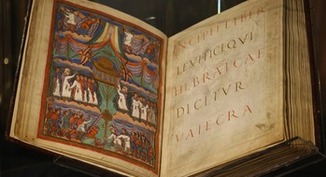 INCIPIT LIBER
LEVITICI QVI
HEBRAICAE
DICITVR
VAIECRA